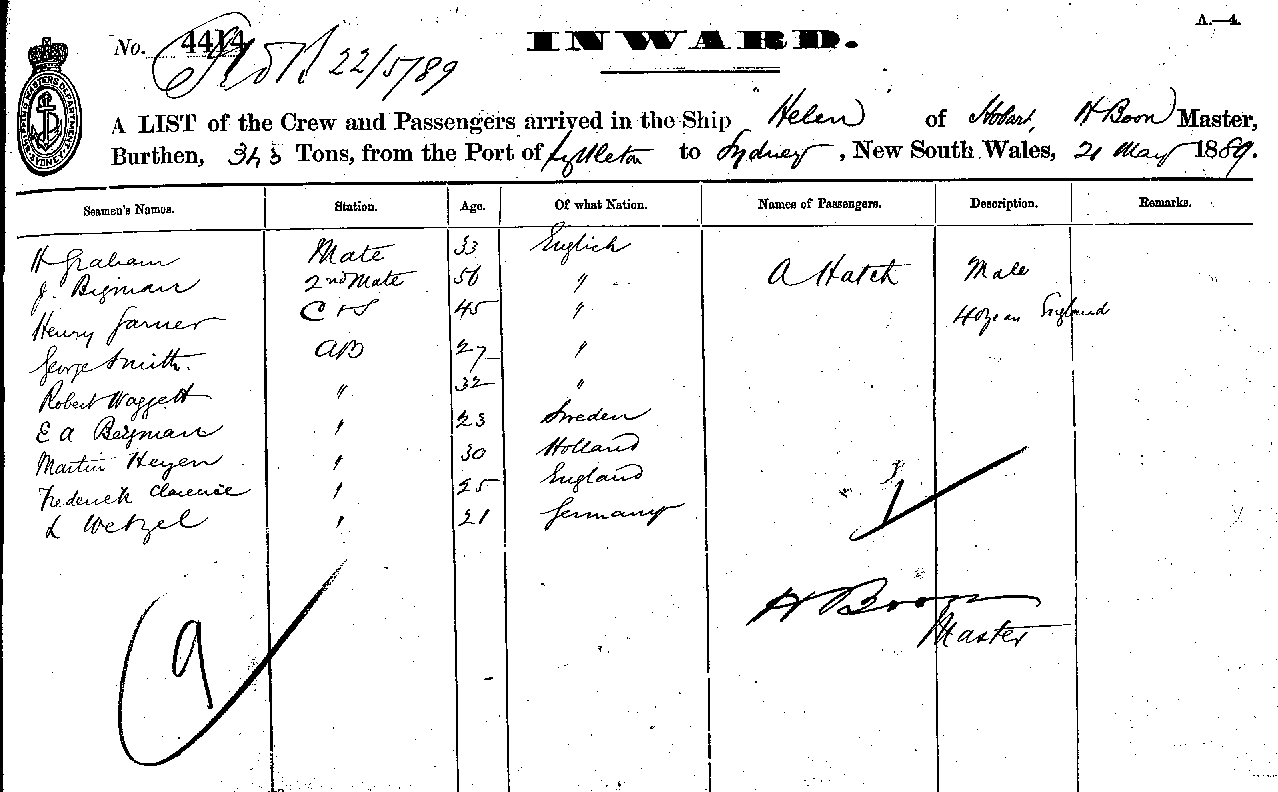 A.—4.
No. 4414 INWARD.
22/5/89
A LIST of the Crew and Passengers arrived in the Ship "Helen" of Hobart, H Boon Master,
Burthen, 343 Tons, from the Port of Lyttleton to Sydney, New South Wales, 21 May 1889.
Seamen's Names. Station. Age. Of what Nation. Names of Passengers. Description. Remarks.
H Graham Mate 33 English
J. Bigman 2nd Mate 56 " A Hatch Male
Henry Garner C & S 45 " 40 years England
George Smith. AB 27 "
Robert Waggett " 32 "
E A Bergman " 23 Sweden
Martin Heyen " 30 Holland
Frederick Clarence " 25 England
L Wetzel " 21 Germany
H Boon
Master
9